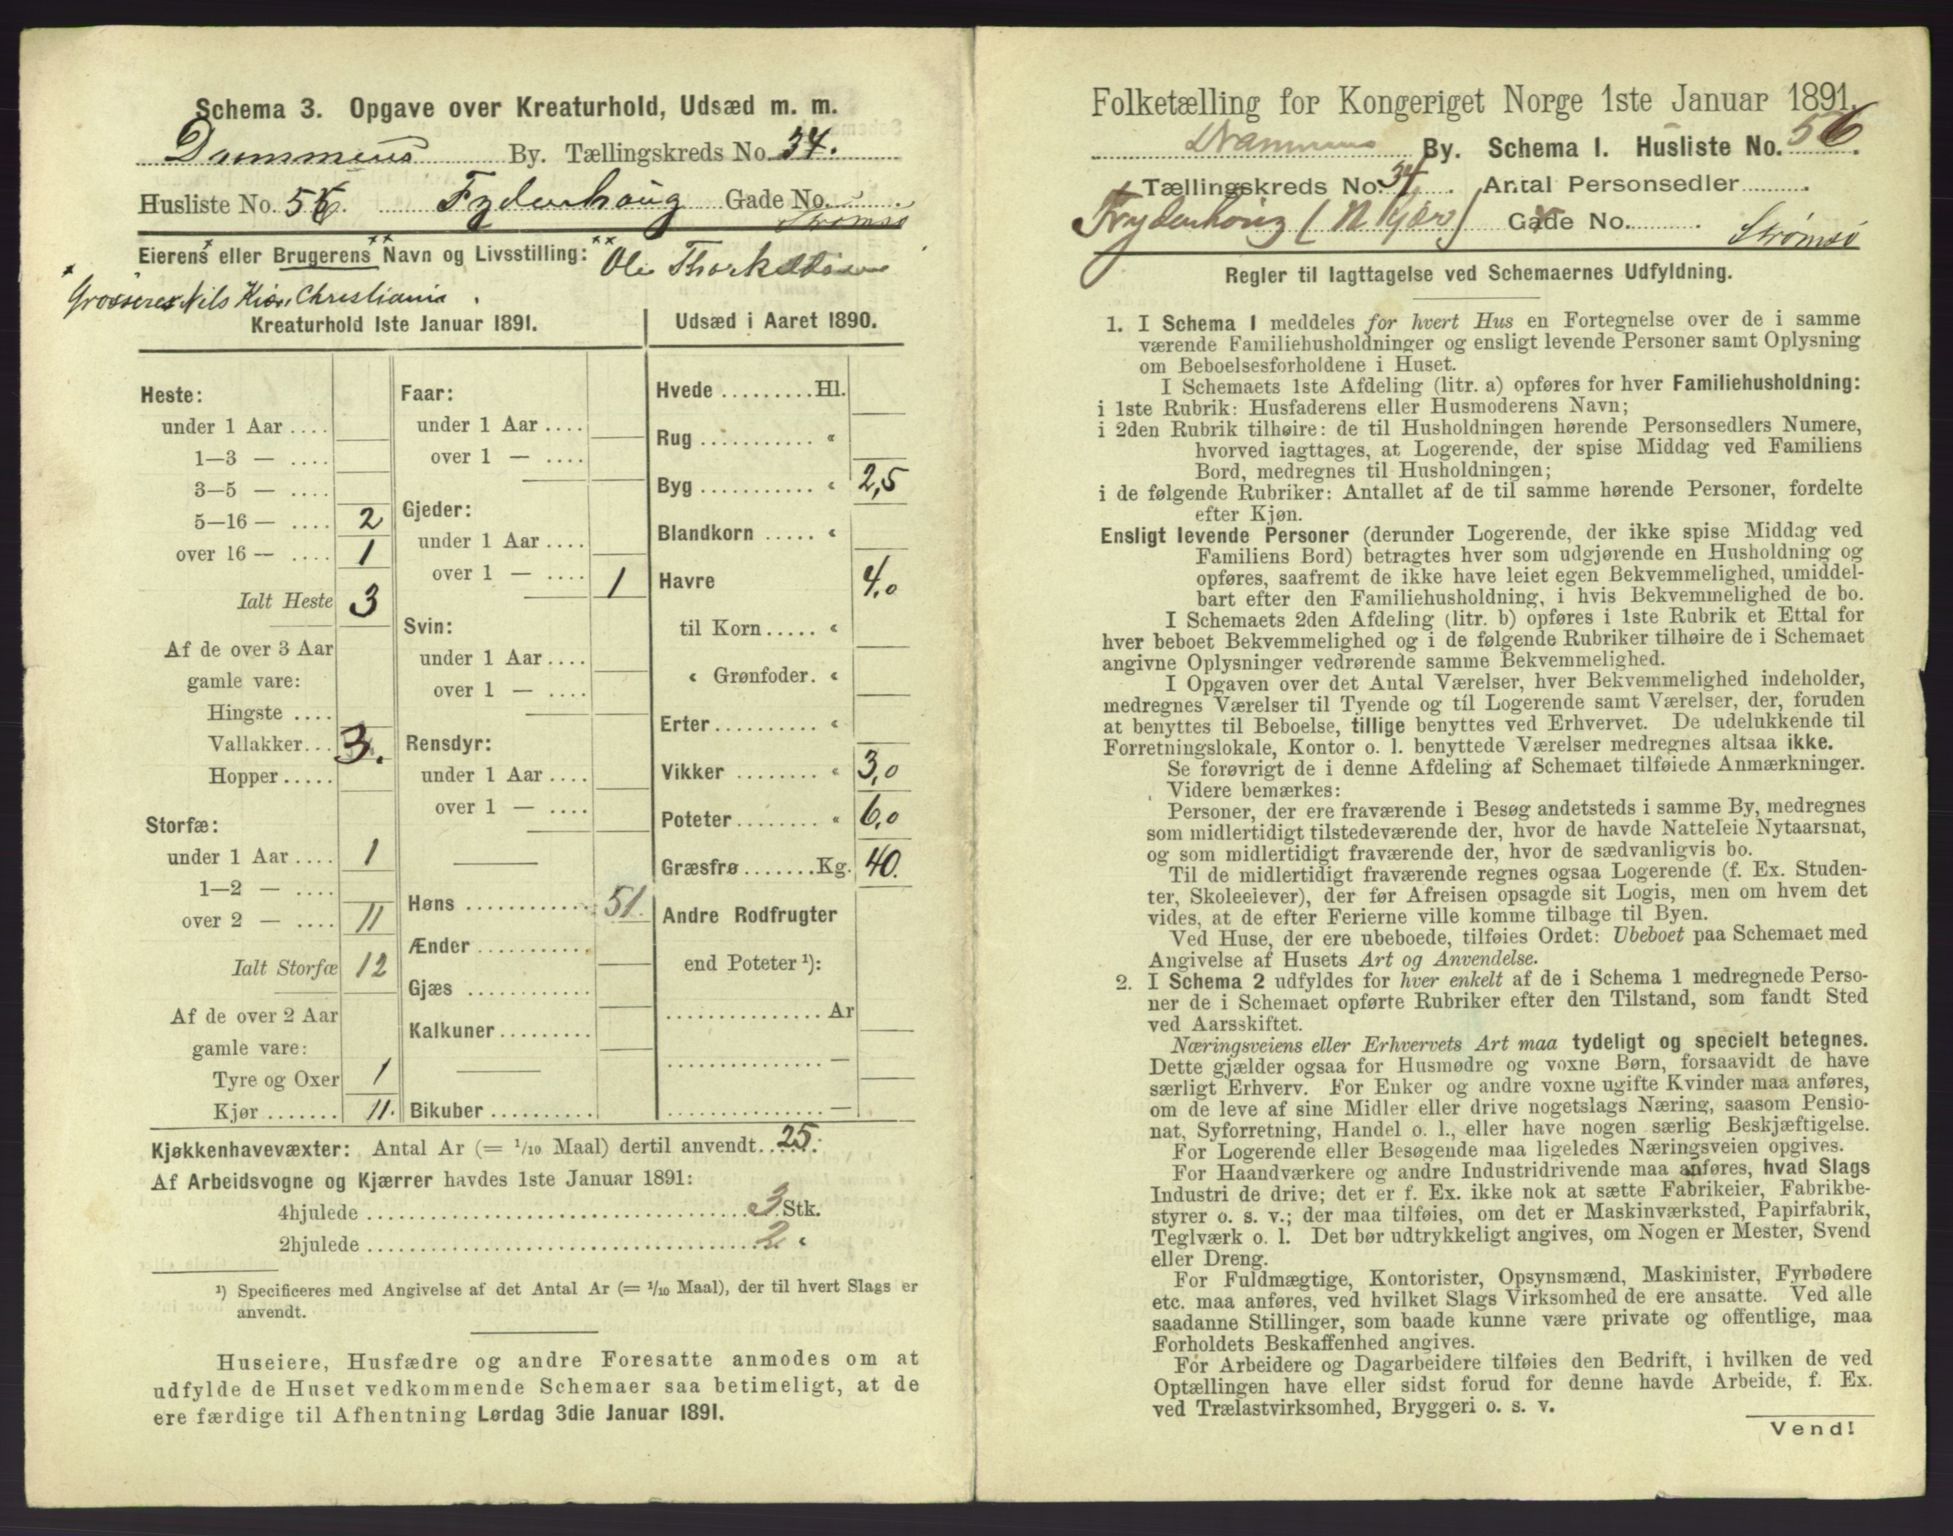 Schema 3. Opgave over Kreaturhold, Udsæd m. m.
Drammens By. Tællingskreds No. 34.
Husliste No. 56. Frydenhoug Gade No.
Strømsø
Eierens* eller Brugerens** Navn og Livsstilling: ** Ole
* Grosserer Nils Kiær, Christiania.
Kreaturhold 1ste Januar 1891.
Heste:
under 1 Aar ....
1—3 — ....
3—5 — ....
5—16 — .... 2
over 16 — .... 1
Ialt Heste 3
Af de over 3 Aar
gamle vare:
Hingste ....
Vallakker... 3.
Hopper.....
Storfæ:
under 1 Aar.... 1
1—2 — ....
over 2 — .... 11
Ialt Storfæ 12
Af de over 2 Aar
gamle vare:
Tyre og Oxer 1
Kjør ....... 11.
Faar:
under 1 Aar ....
over 1 — ....
Gjeder:
under 1 Aar ....
over 1 — .... 1
Svin:
under 1 Aar....
over 1 — ....
Rensdyr:
under 1 Aar....
over 1 — ....
Høns ............ 51.
Ænder ...........
Gjæs ............
Kalkuner .........
Bikuber ..........
Udsæd i Aaret 1890.
Hvede .........Hl.
Rug ........... «
Byg ........... « 2,5
Blandkorn ..... «
Havre 4,0
til Korn..... «
« Grønfoder. «
Erter.......... «
Vikker ........ « 3,0
Poteter........ « 6,0
Græsfrø.......Kg. 40.
Andre Rodfrugter
end Poteter ¹):
...............Ar
............... —
............... —
Kjøkkenhavevæxter: Antal Ar (= 1/10 Maal) dertil anvendt...25.
Af Arbeidsvogne og Kjærrer havdes 1ste Januar 1891:
4hjulede .................................... 3 Stk.
2hjulede .................................... 2 «
¹) Specificeres med Angivelse af det Antal Ar (= 1/10 Maal), der til hvert Slags er
anvendt.
Huseiere, Husfædre og andre Foresatte anmodes om at
udfylde de Huset vedkommende Schemaer saa betimeligt, at de
ere færdige til Afhentning Lørdag 3die Januar 1891.
Folketælling for Kongeriget Norge 1ste Januar 1891.
Drammens By. Schema I. Husliste No. 56.
Tællingskreds No. 34. Antal Personsedler.........
Frydenhoug (N. Kjær) Gade No......... Strømsø
Regler til Iagttagelse ved Schemaernes Udfyldning.
1. I Schema 1 meddeles for hvert Hus en Fortegnelse over de i samme
værende Familiehusholdninger og ensligt levende Personer samt Oplysning
om Beboelsesforholdene i Huset.
I Schemaets 1ste Afdeling (litr. a) opføres for hver Familiehusholdning:
i 1ste Rubrik: Husfaderens eller Husmoderens Navn;
i 2den Rubrik tilhøire: de til Husholdningen hørende Personsedlers Numere,
hvorved iagttages, at Logerende, der spise Middag ved Familiens
Bord, medregnes til Husholdningen;
i de følgende Rubriker: Antallet af de til samme hørende Personer, fordelte
efter Kjøn.
Ensligt levende Personer (derunder Logerende, der ikke spise Middag ved
Familiens Bord) betragtes hver som udgjørende en Husholdning og
opføres, saafremt de ikke have leiet egen Bekvemmelighed, umiddel-
bart efter den Familiehusholdning, i hvis Bekvemmelighed de bo.
I Schemaets 2den Afdeling (litr. b) opføres i 1ste Rubrik et Ettal for
hver beboet Bekvemmelighed og i de følgende Rubriker tilhøire de i Schemaet
angivne Oplysninger vedrørende samme Bekvemmelighed.
I Opgaven over det Antal Værelser, hver Bekvemmelighed indeholder,
medregnes Værelser til Tyende og til Logerende samt Værelser, der, foruden
at benyttes til Beboelse, tillige benyttes ved Erhvervet. De udelukkende til
Forretningslokale, Kontor o. l. benyttede Værelser medregnes altsaa ikke.
Se forøvrigt de i denne Afdeling af Schemaet tilføiede Anmærkninger.
Videre bemærkes:
Personer, der ere fraværende i Besøg andetsteds i samme By, medregnes
som midlertidigt tilstedeværende der, hvor de havde Natteleie Nytaarsnat,
og som midlertidigt fraværende der, hvor de sædvanligvis bo.
Til de midlertidigt fraværende regnes ogsaa Logerende (f. Ex. Studen-
ter, Skoleelever), der før Afreisen opsagde sit Logis, men om hvem det
vides, at de efter Ferierne ville komme tilbage til Byen.
Ved Huse, der ere ubeboede, tilføies Ordet: Ubeboet paa Schemaet med
Angivelse af Husets Art og Anvendelse.
2. I Schema 2 udfyldes for hver enkelt af de i Schema 1 medregnede Perso-
ner de i Schemaet opførte Rubriker efter den Tilstand, som fandt Sted
ved Aarsskiftet.
Næringsveiens eller Erhvervets Art maa tydeligt og specielt betegnes.
Dette gjælder ogsaa for Husmødre og voxne Børn, forsaavidt de have
særligt Erhverv. For Enker og andre voxne ugifte Kvinder maa anføres,
om de leve af sine Midler eller drive nogetslags Næring, saasom Pensio-
nat, Syforretning, Handel o. l., eller have nogen særlig Beskjæftigelse.
For Logerende eller Besøgende maa ligeledes Næringsveien opgives.
For Haandværkere og andre Industridrivende maa anføres, hvad Slags
Industri de drive; det er f. Ex. ikke nok at sætte Fabrikeier, Fabrikbe-
styrer o. s. v.; der maa tilføies, om det er Maskinværksted, Papirfabrik,
Teglværk o. l. Det bør udtrykkeligt angives, om Nogen er Mester, Svend
eller Dreng.
For Fuldmægtige, Kontorister, Opsynsmænd, Maskinister, Fyrbødere
etc. maa anføres, ved hvilket Slags Virksomhed de ere ansatte. Ved alle
saadanne Stillinger, som baade kunne være private og offentlige, maa
Forholdets Beskaffenhed angives.
For Arbeidere og Dagarbeidere tilføies den Bedrift, i hvilken de ved
Optællingen have eller sidst forud for denne havde Arbeide, f. Ex.
ved Trælastvirksomhed, Bryggeri o. s. v.
Vend!